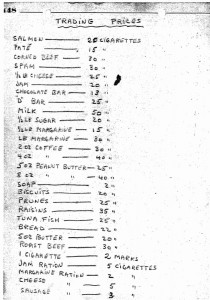 TRADING PRICES
SALMON 20 CIGARETTES
PATÉ 15 "
CORNED BEEF 30 "
SPAM 30 "
1/4 LB CHEESE 25 "
JAM 20 "
CHOCOLATE BAR "
'D' BAR 25 "
MILK 50 "
1/2 LB SUGAR 20 "
1/2 LB MARGARINE 15 "
LB MARGARINE 30 "
2 OZ COFFEE 30 "
4 OZ " 40 "
5 OZ PEANUT BUTTER 25 "
8 OZ " 40 "
SOAP 2 "
BISCUITS 20 "
PRUNES 25 "
RAISINS 35 "
TUNA FISH 25 "
BREAD 22 "
5 OZ BUTTER 20 "
ROAST BEEF 30 "
1 CIGARETTE 2 MARKS
JAM RATION 5 CIGARETTES
MARGARINE RATION 2 "
CHEESE " 5 "
SAUSAGE " 3 "